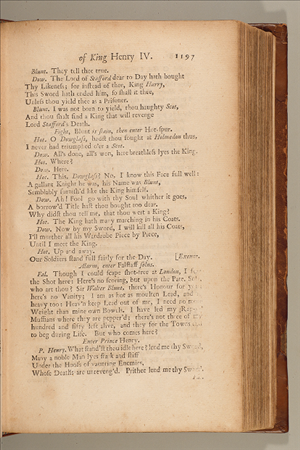 of King Henry IV. 1197
Blunt. They tell thee true.
Dow. The Lord of Stafford dear to Day hath bought
Thy Likeness; for instead of thee, King Harry,
This Sword hath ended him, so shall it thee,
Unless thou yield thee as a Prisoner.
Blunt. I was not born to yield, thou haughty Scot,
And thou shalt find a King that will revenge
Lord Stafford's Death.
Fight, Blunt is slain, then enter Hot-spur.
Hot. O Dowglass, hadst thou fought at Holmedon thus,
I never had triumphed o'er a Scot.
Dow. All's done, all's won, here breathless lyes the King.
Hot. Where?
Dow. Here.
Hot. This, Dowglass? No, I know this Face full well:
A gallant Knight he was, his Name was Blunt,
Semblably furnish'd like the King himself.
Dow. Ah! Fool go with thy Soul whither it goes,
A borrow'd Title hast thou bought too dear.
Why didst thou tell me, that thou wert a King?
Hot. The King hath many marching in his Coats.
Dow. Now by my Sword, I will kill all his Coats,
I'll murther all his Wardrobe Piece by Piece,
Until I meet the King.
Hot. Up and away,
Our Soldiers stand full fairly for the Day. [Exeunt.
Alarm, enter Falstaff solus.
Fal. Though I could scape shot-free at London, I
the Shot here: Here's no scoring, but upon the Pate.
who are thou? Sir Walter Blunt, there's Honour for
here's no Vanity; I am as hot as moulten Lead, and
heavy too: Heav'n keep Lead out of me, I need no
Weight than mine own Bowels. I have led my
Muffians where they are pepper'd; there's not three of
hundred and fifty left alive, and they for the Town
to beg during Life. But who comes here?
Enter Prince Henry.
P. Henry. What stand'st thou idle here? lend me thy
Many a noble Man lyes stark and stiff
Under the Hoofs of vaunting Enemies,
Whose Deaths are unreveng'd. Prithee lend me thy